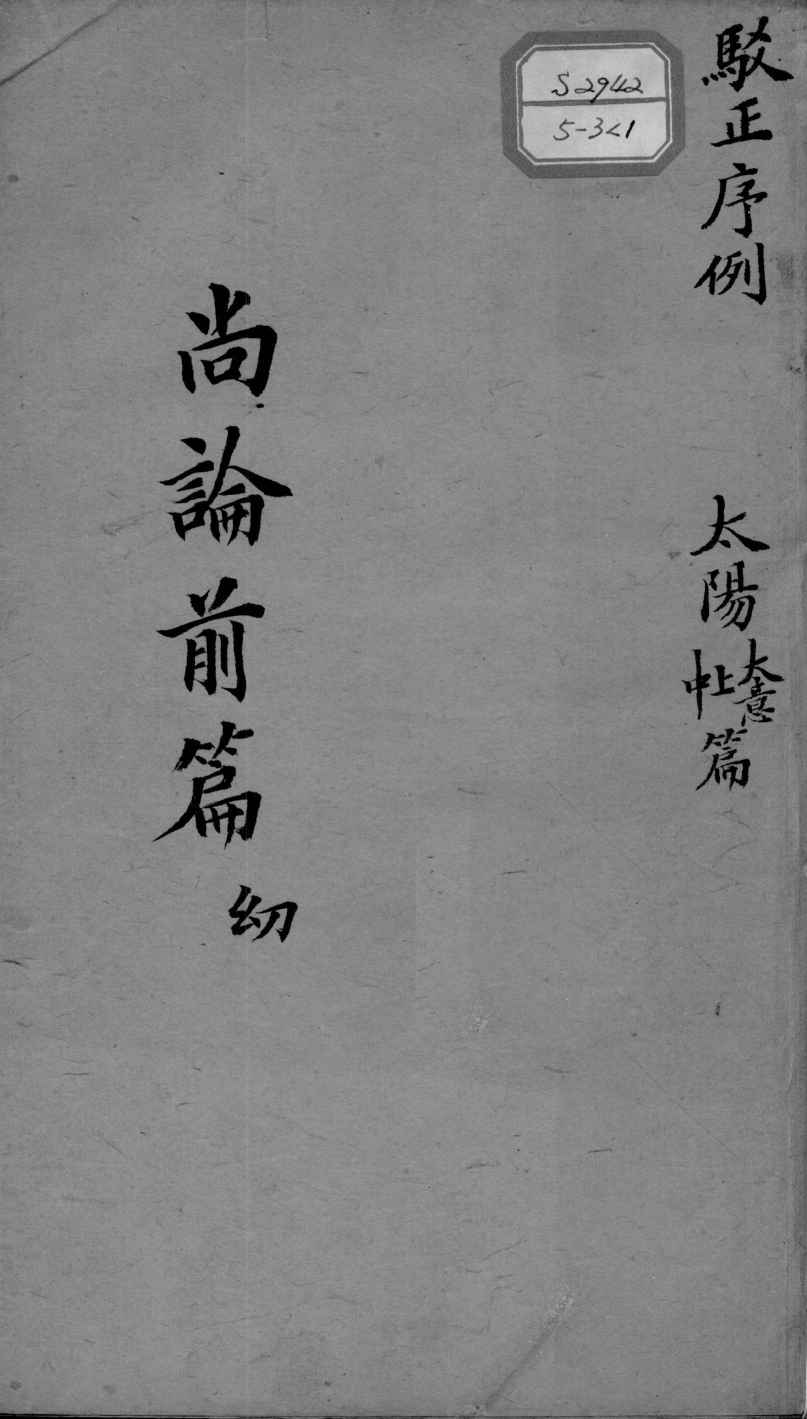 駁正序例
太陽大意上中篇
尚論前篇 㓜
S2942
5-3<1